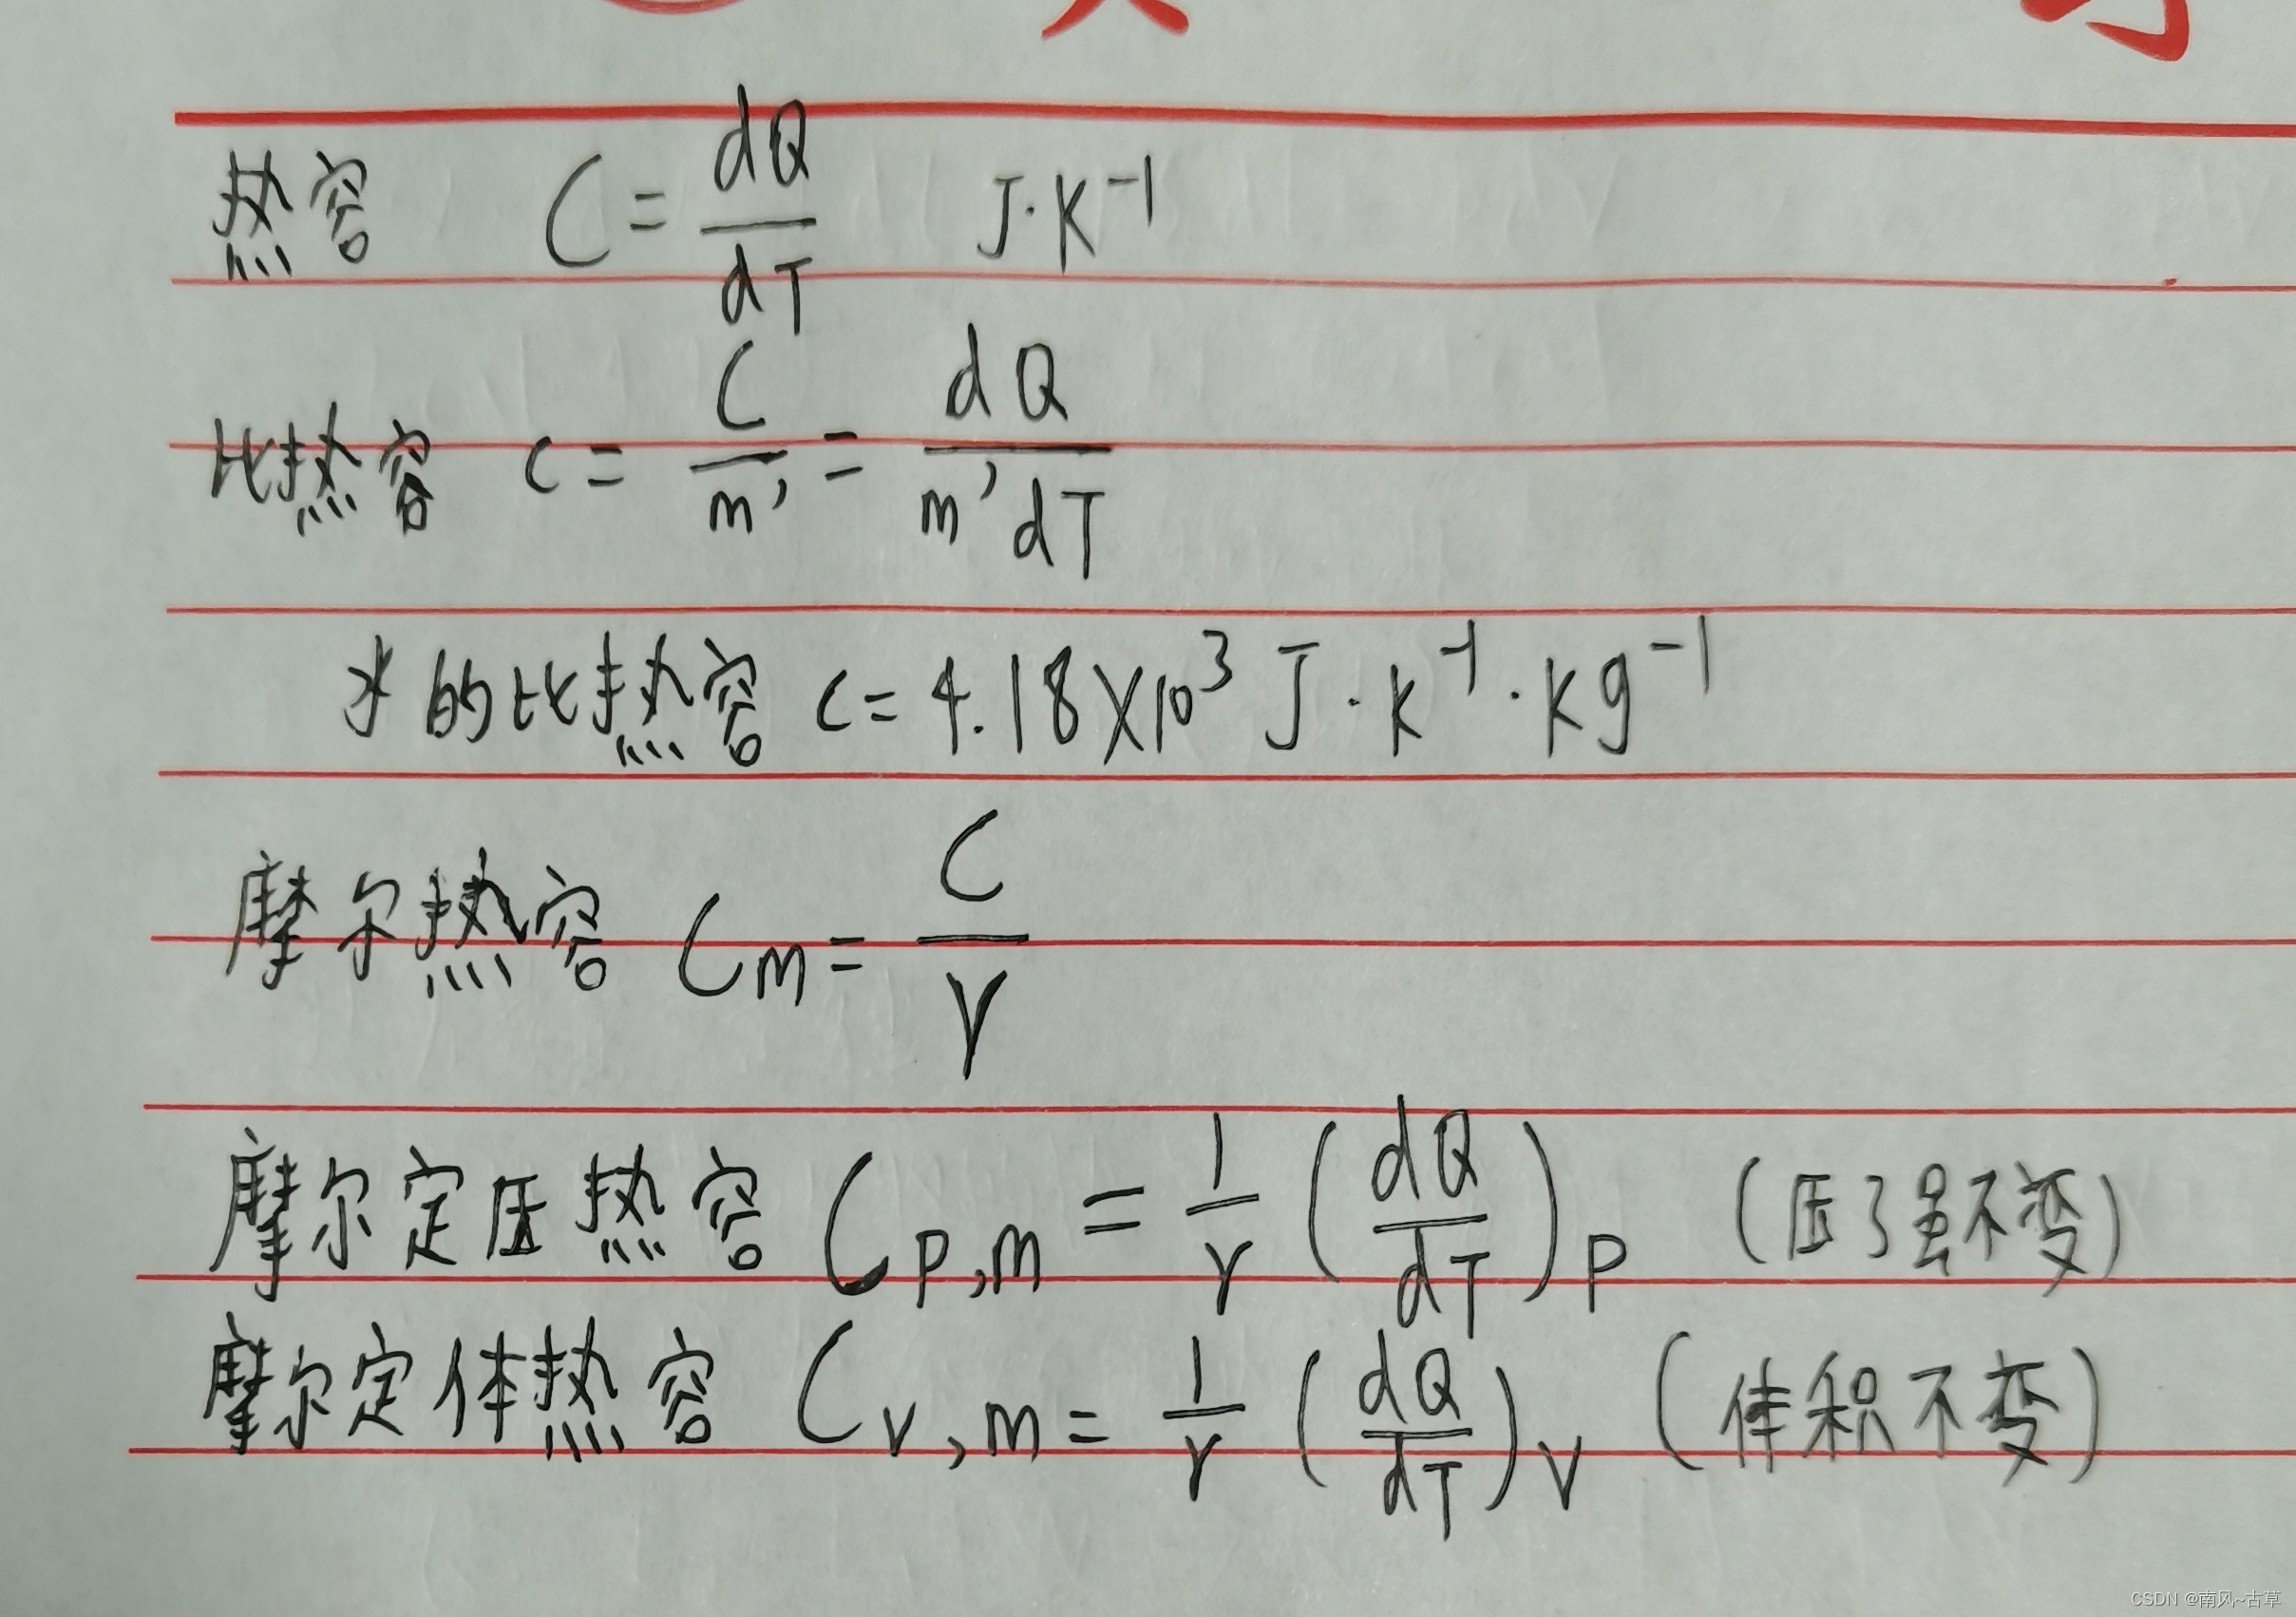 热容 C = dQ/dT J·K⁻¹
比热容 c = C/m' = dQ/m'dT
水的比热容 c = 4.18×10³ J·K⁻¹·Kg⁻¹
摩尔热容 Cm = C/γ
摩尔定压热容 Cp,m = 1/γ (dQ/dT)p (压强不变)
摩尔定体热容 Cv,m = 1/γ (dQ/dT)v (体积不变)
CSDN @南风~古草